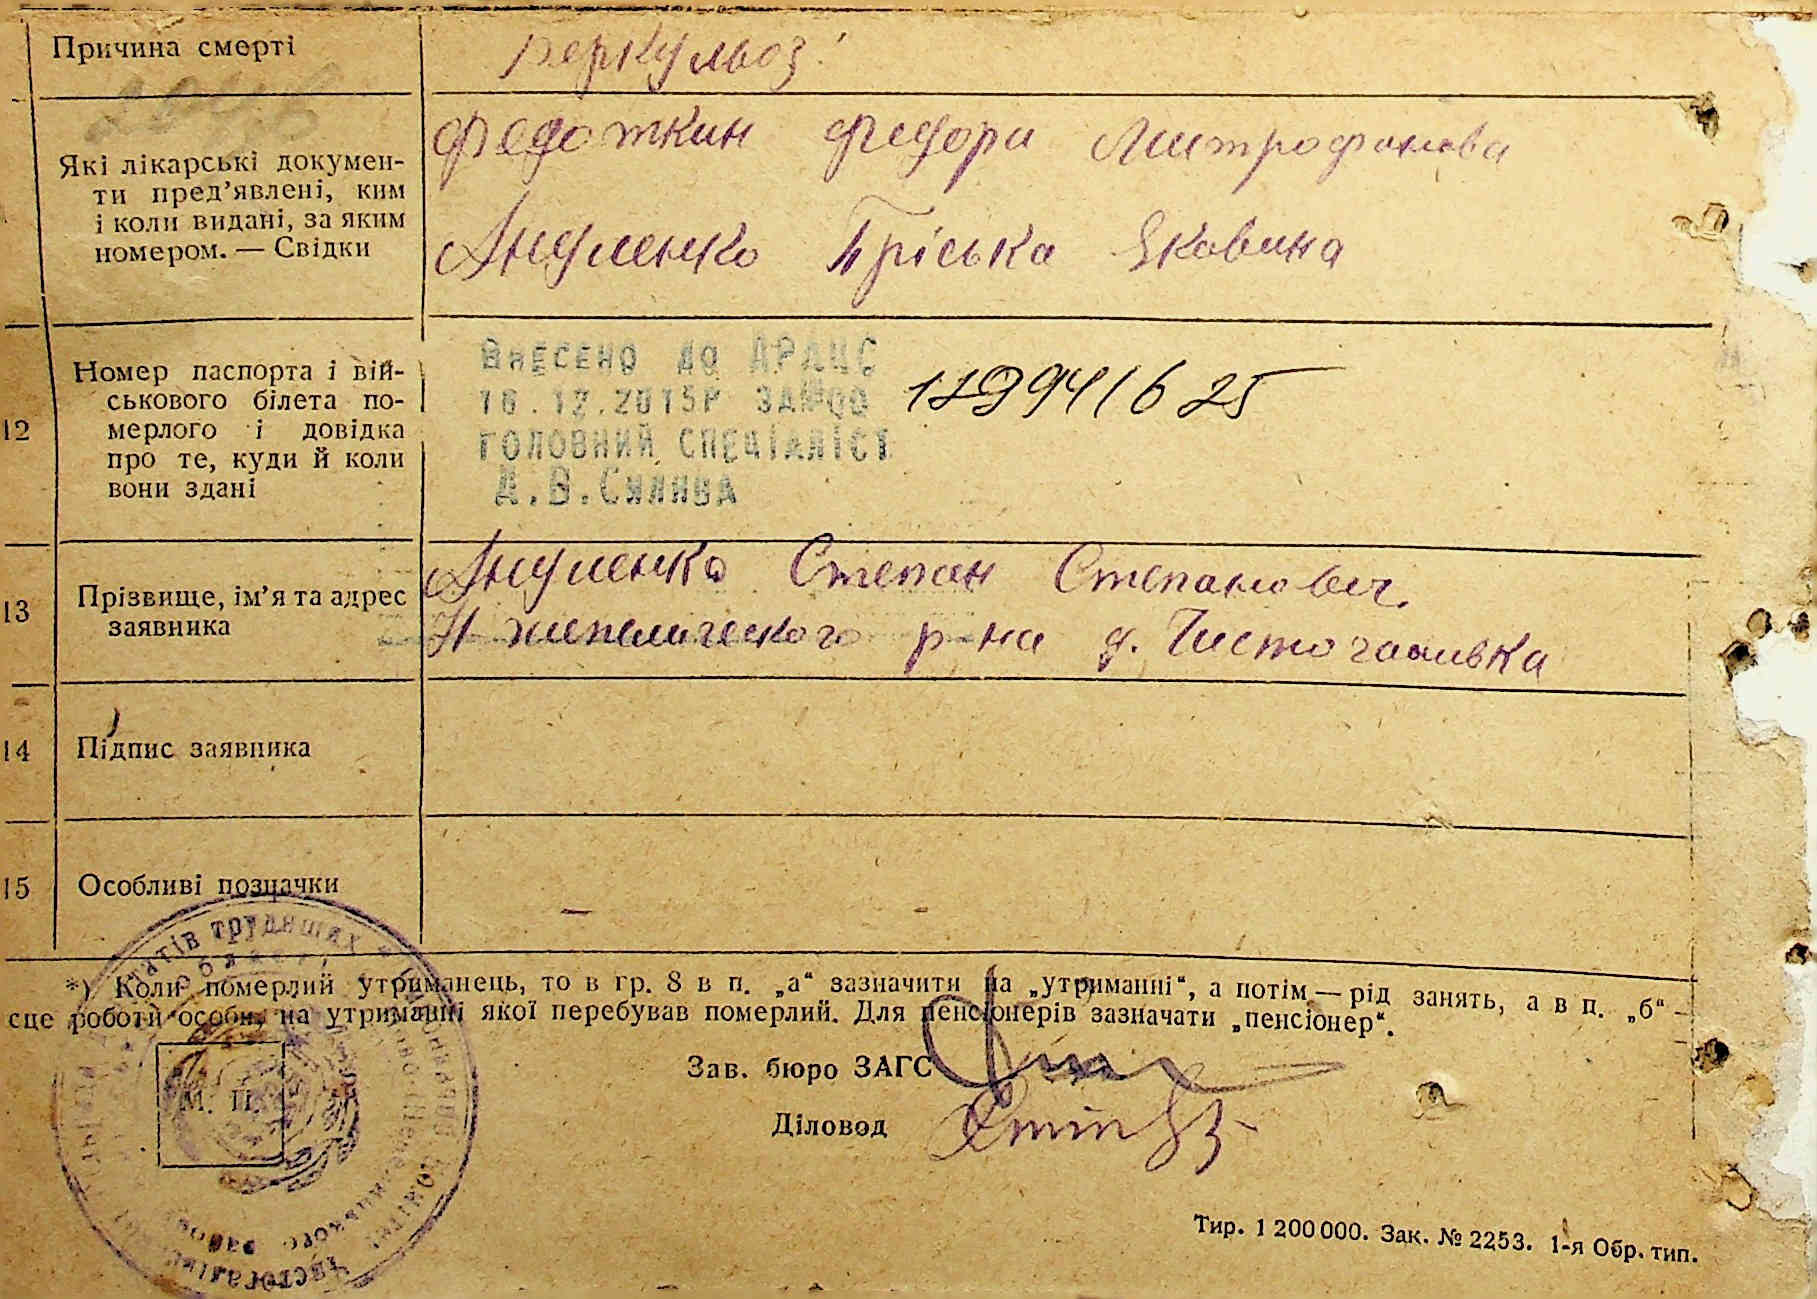 Причина смерті
беркульоз
Які лікарські докумен-
ти пред’явлені, ким
і коли видані, за яким
номером. — Свідки
Федоткин Федора Митрофанова
Януленко Пріська Яковина
12
Номер паспорта і вій-
ськового білета по-
мерлого і довідка
про те, куди й коли
вони здані
ВНЕСЕНО ДО ДРАЦС
18.12.2015Р ЗА№00
129941625
ГОЛОВНИЙ СПЕЦІАЛІСТ
13
Прізвище, ім’я та адрес
заявника
Януленко Степан Степанович.
р-на д. Чистогалівка
14
Підпис заявника
15
Особливі позначки
*) Коли померлий утриманець, то в гр. 8 в п. „а“ зазначити на „утриманні“, а потім — рід занять, а в п. „б“ —
сце роботи особи, на утриманні якої перебував померлий. Для пенсіонерів зазначати „пенсіонер“.
Зав. бюро ЗАГС
М. П.
Діловод
Тир. 1 200 000. Зак. № 2253. 1-я Обр. тип.